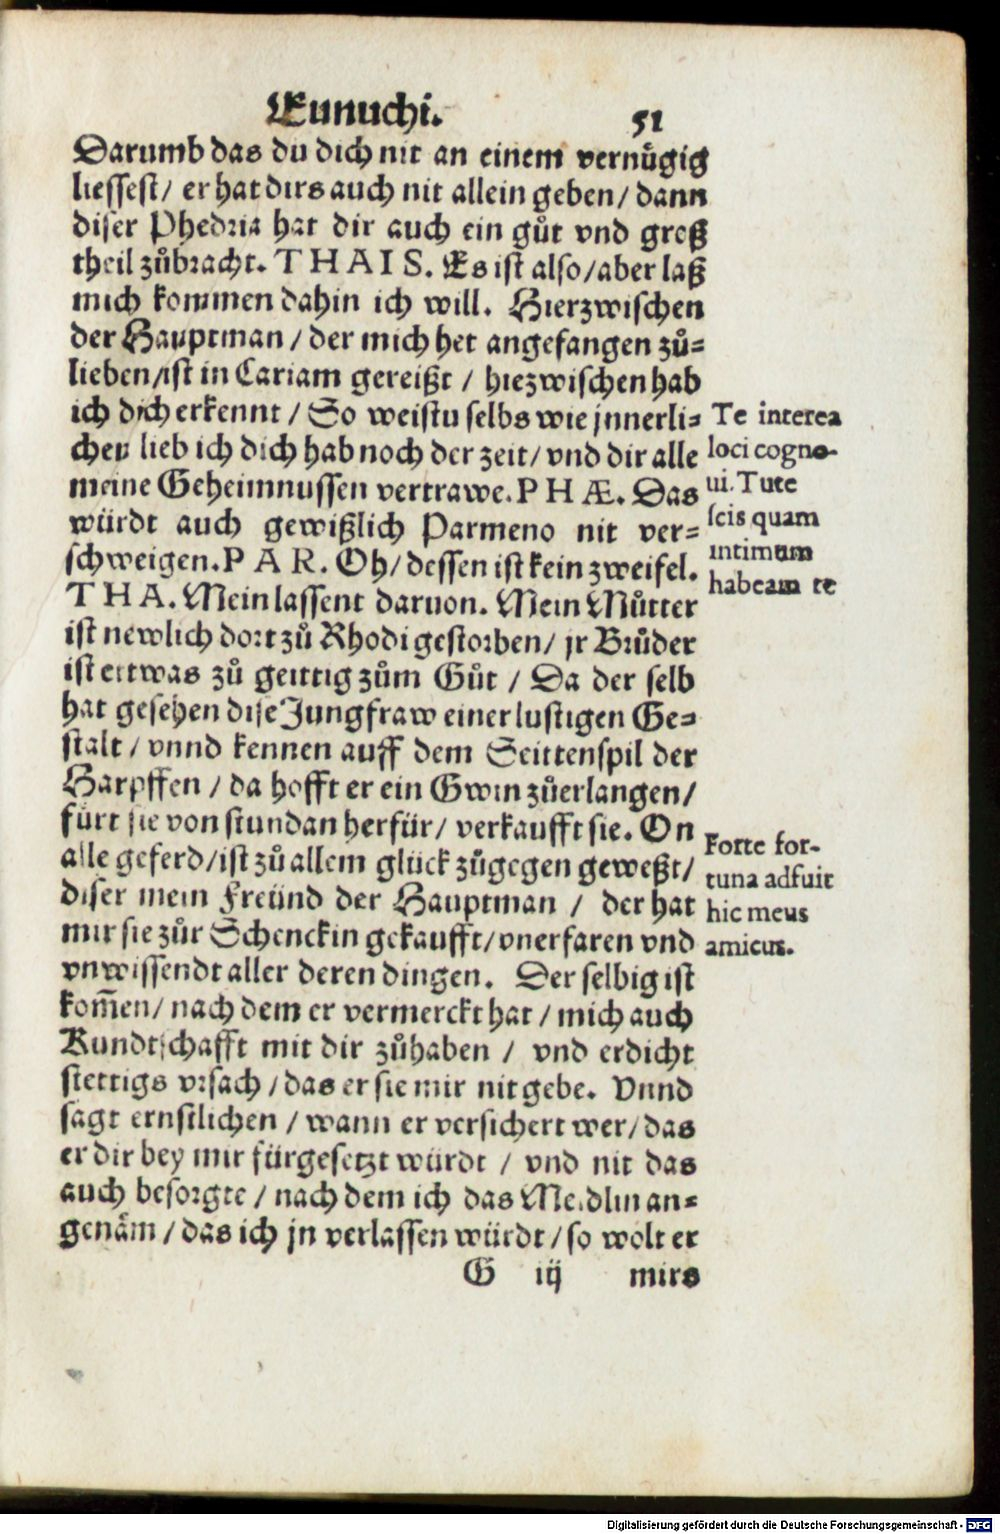 Eunuchi. 51
Darumb das du dich nit an einem vernůgig
liessest/ er hat dirs auch nit allein geben/ dann
diser Phedria hat dir auch ein gůt vnd groß
theil zůbracht. THAIS. Es ist also/ aber laß
mich kommen dahin ich will. Hierzwischen
der Hauptman/ der mich het angefangen zů=
lieben/ ist in Cariam gereißt/ hiezwischen hab
ich dich erkennt/ So weistu selbs wie jnnerli=
chen lieb ich dich hab noch der zeit/ vnd dir alle
meine Geheimnussen vertrawe. PHÆ. Das
würdt auch gewißlich Parmeno nit ver=
schweigen. PAR. Oh/ dessen ist kein zweifel.
THA. Mein lassent daruon. Mein Můtter
ist newlich dort zů Rhodi gestorben/ jr Brůder
ist ettwas zů geittig zům Gůt/ Da der selb
hat gesehen dise Jungfraw einer lustigen Ge=
stalt/ vnnd kennen auff dem Seittenspil der
Harpffen/ da hofft er ein Gwin zůerlangen/
fürt sie von stundan herfür/ verkaufft sie. On
alle geferd/ ist zů allem glück zůgegen geweßt/
diser mein Freünd der Hauptman/ der hat
mir sie zůr Schenckin gekaufft/ vnerfaren vnd
vnwissendt aller deren dingen. Der selbig ist
kom̄en/ nach dem er vermerckt hat/ mich auch
Kundtschafft mit dir zůhaben/ vnd erdicht
stettigs vrsach/ das er sie mir nit gebe. Vnnd
sagt ernstlichen/ wann er versichert wer/ das
er dir bey mir fürgesetzt würdt/ vnd nit das
auch besorgte/ nach dem ich das Meidlin an=
genäm/ das ich jn verlassen würdt/ so wolt er
G iij mirs
Te interea
loci cogno-
ui. Tute
scis quam
intimum
habeam te
Forte for-
tuna adfuit
hic meus
amicus.
Digitalisierung gefördert durch die Deutsche Forschungsgemeinschaft - DFG